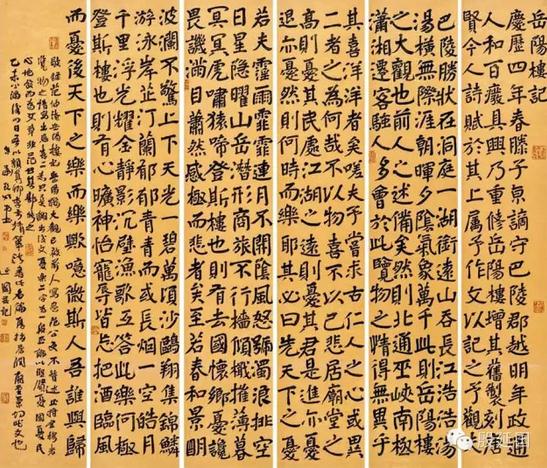 岳陽樓記
慶曆四年春滕子京謫守巴陵郡越明年政通
人和百廢具興乃重修岳陽樓增其舊制刻唐
賢今人詩賦于其上屬予作文以記之予觀夫
巴陵勝狀在洞庭一湖銜遠山吞長江浩浩湯
湯橫無際涯朝暉夕陰氣象萬千此則岳陽樓
之大觀也前人之述備矣然則北通巫峽南極
瀟湘遷客騷人多會於此覽物之情得無異乎
其喜洋洋者矣嗟夫予嘗求古仁人之心或異
二者之為何哉不以物喜不以己悲居廟堂之
高則憂其民處江湖之遠則憂其君是進亦憂
退亦憂然則何時而樂耶其必曰先天下之憂
若夫霪雨霏霏連月不開陰風怒號濁浪排空
日星隱曜山岳潛形商旅不行檣傾楫摧薄暮
冥冥虎嘯猿啼登斯樓也則有去國懷鄉憂讒
畏譏滿目蕭然感極而悲者矣至若春和景明
波瀾不驚上下天光一碧萬頃沙鷗翔集錦鱗
游泳岸芷汀蘭郁郁青青而或長煙一空皓月
千里浮光耀金靜影沉璧漁歌互答此樂何極
登斯樓也則有心曠神怡寵辱皆忘把酒臨風
而憂後天下之樂而樂歟噫微斯人吾誰與歸
殷延国